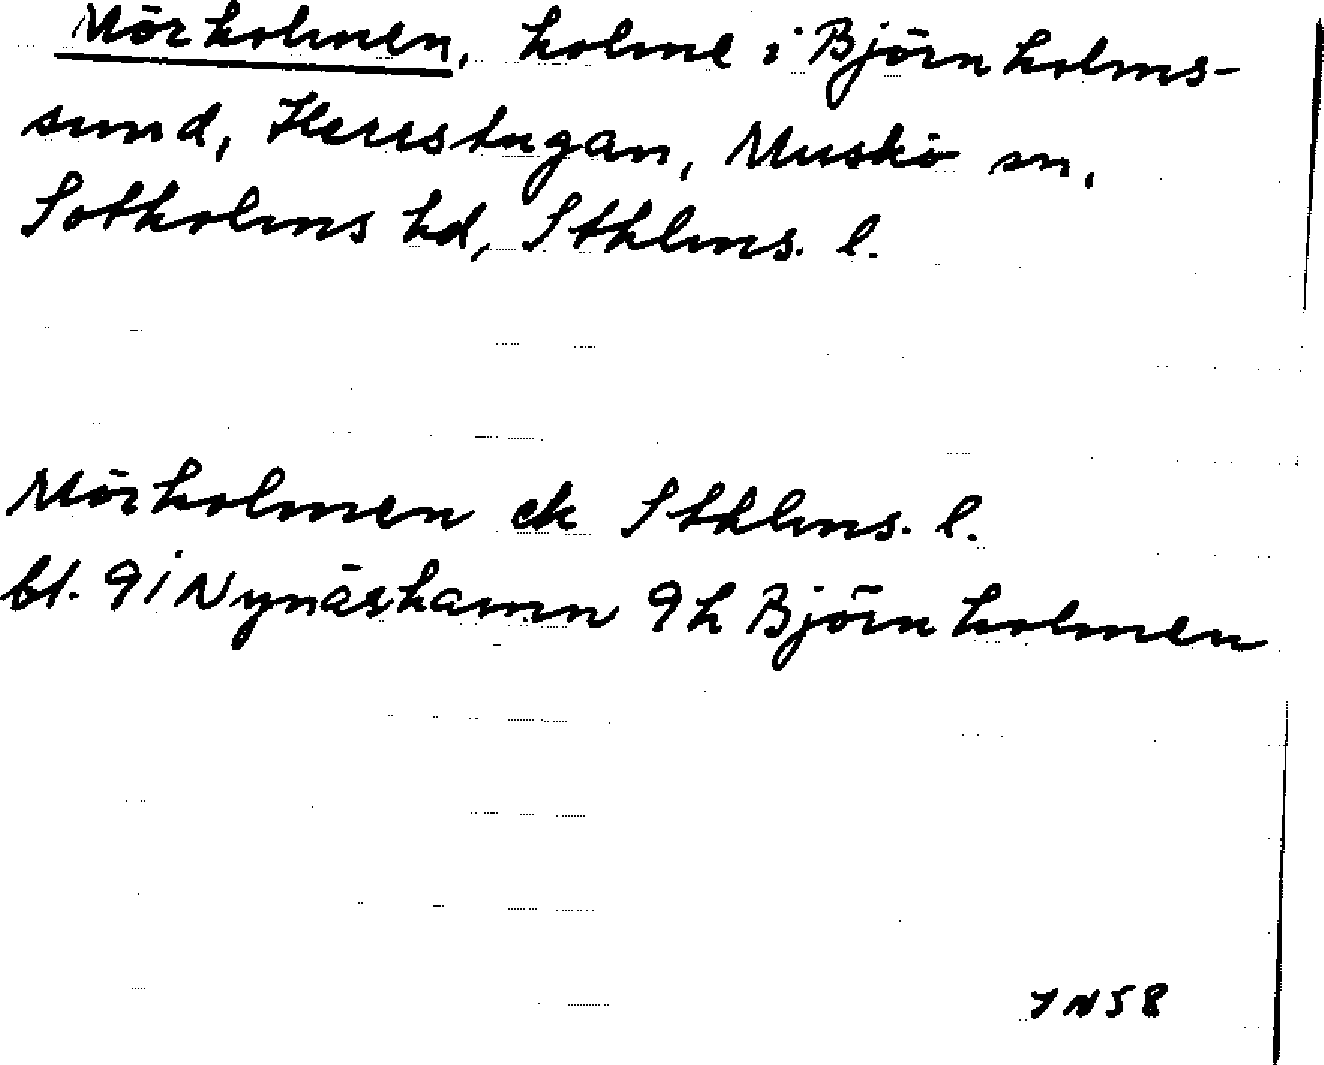 Mörholmen, holme i Björnholms-
sund, Herrstugan, Muskö sn,
Sotholms hd, Sthlms. l.
Mörholmen ek Sthlms. l.
bl. 9i Nynäshamn 9h Björnholmen
YN58